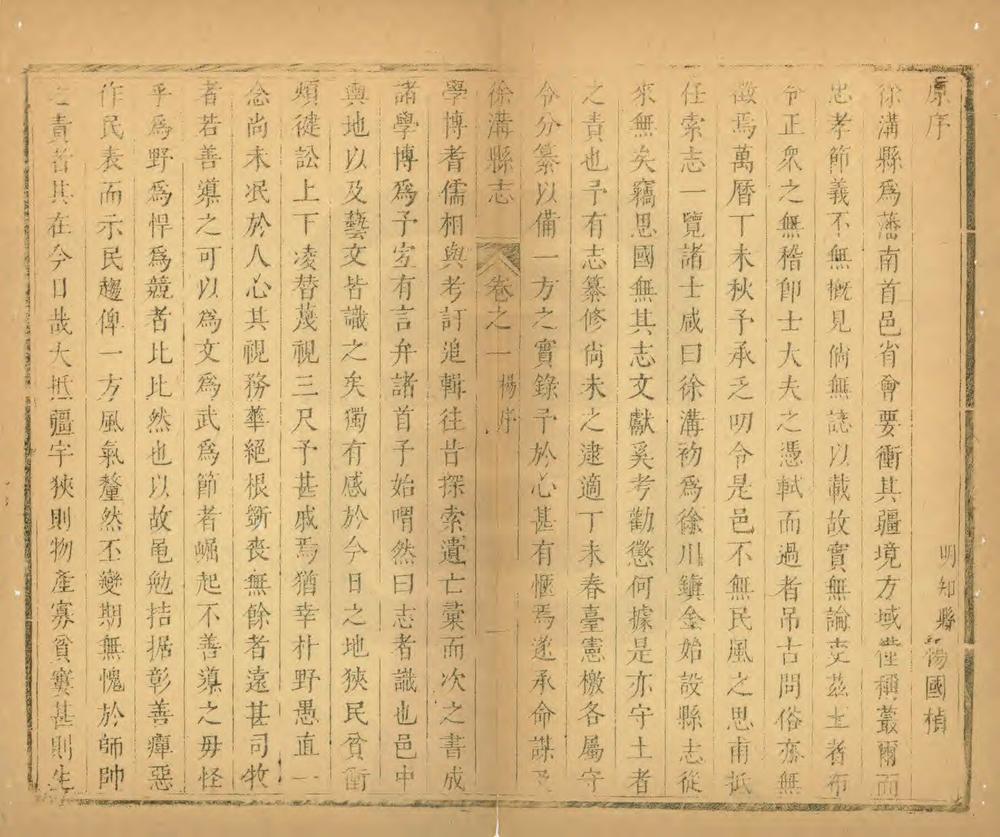 原序
明知縣楊國楨
徐溝縣爲藩南首邑省會要衝其疆境方域僅稱叢爾而
忠孝節義不無慨見倘無誌以載故實無論吏茲土者布
令正衆之無稽卽士大夫之憑軾而過者吊古問俗亦無
徵焉萬曆丁未秋予承乏叨令是邑不無民風之思甫抵
任索志一覽諸士咸曰徐溝初爲徐川鎭金始設縣志從
來無矣竊思國無其志文獻奚考勸懲何據是亦守土者
之責也予有志纂修尙未之逮適丁未春臺憲檄各屬守
令分纂以備一方之實錄予於心甚有愜焉遂承命謀及
徐溝縣志 卷之一 楊序 一
學博耆儒相與考訂追輯往昔探索遺亡彙而次之書成
諸學博爲予宜有言弁諸首予始喟然曰志者識也邑中
輿地以及藝文皆識之矣獨有感於今日之地狹民貧衝
煩徒訟上下凌替蔑視三尺予甚戚焉猶幸朴野愚直一
念尚未泯於人心其視務華絕根斵喪無餘者遠甚司牧
者若善導之可以爲文爲武爲節者崛起不善導之毋怪
乎爲野爲悍爲競者比比然也以故黽勉拮据彰善癉惡
作民表而示民趨俾一方風氣釐然丕變期無愧於師帥
之責者其在今日哉大抵疆宇狹則物產寡貧窶甚則生